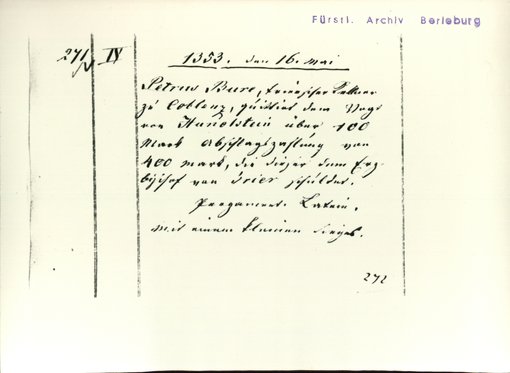 Fürstl. Archiv Berleburg
271 IV
1353. den 16. Mai
Petrus Bure, trierischer Kellner
zu Coblenz, quittirt dem Vogt
von Hunolstein über 100
Mark Abschlagszahlung von
400 Mark, die dieser dem Erz-
bischof von Trier schuldet.
Pergament. Latein.
Mit einem kleinen Siegel.
272